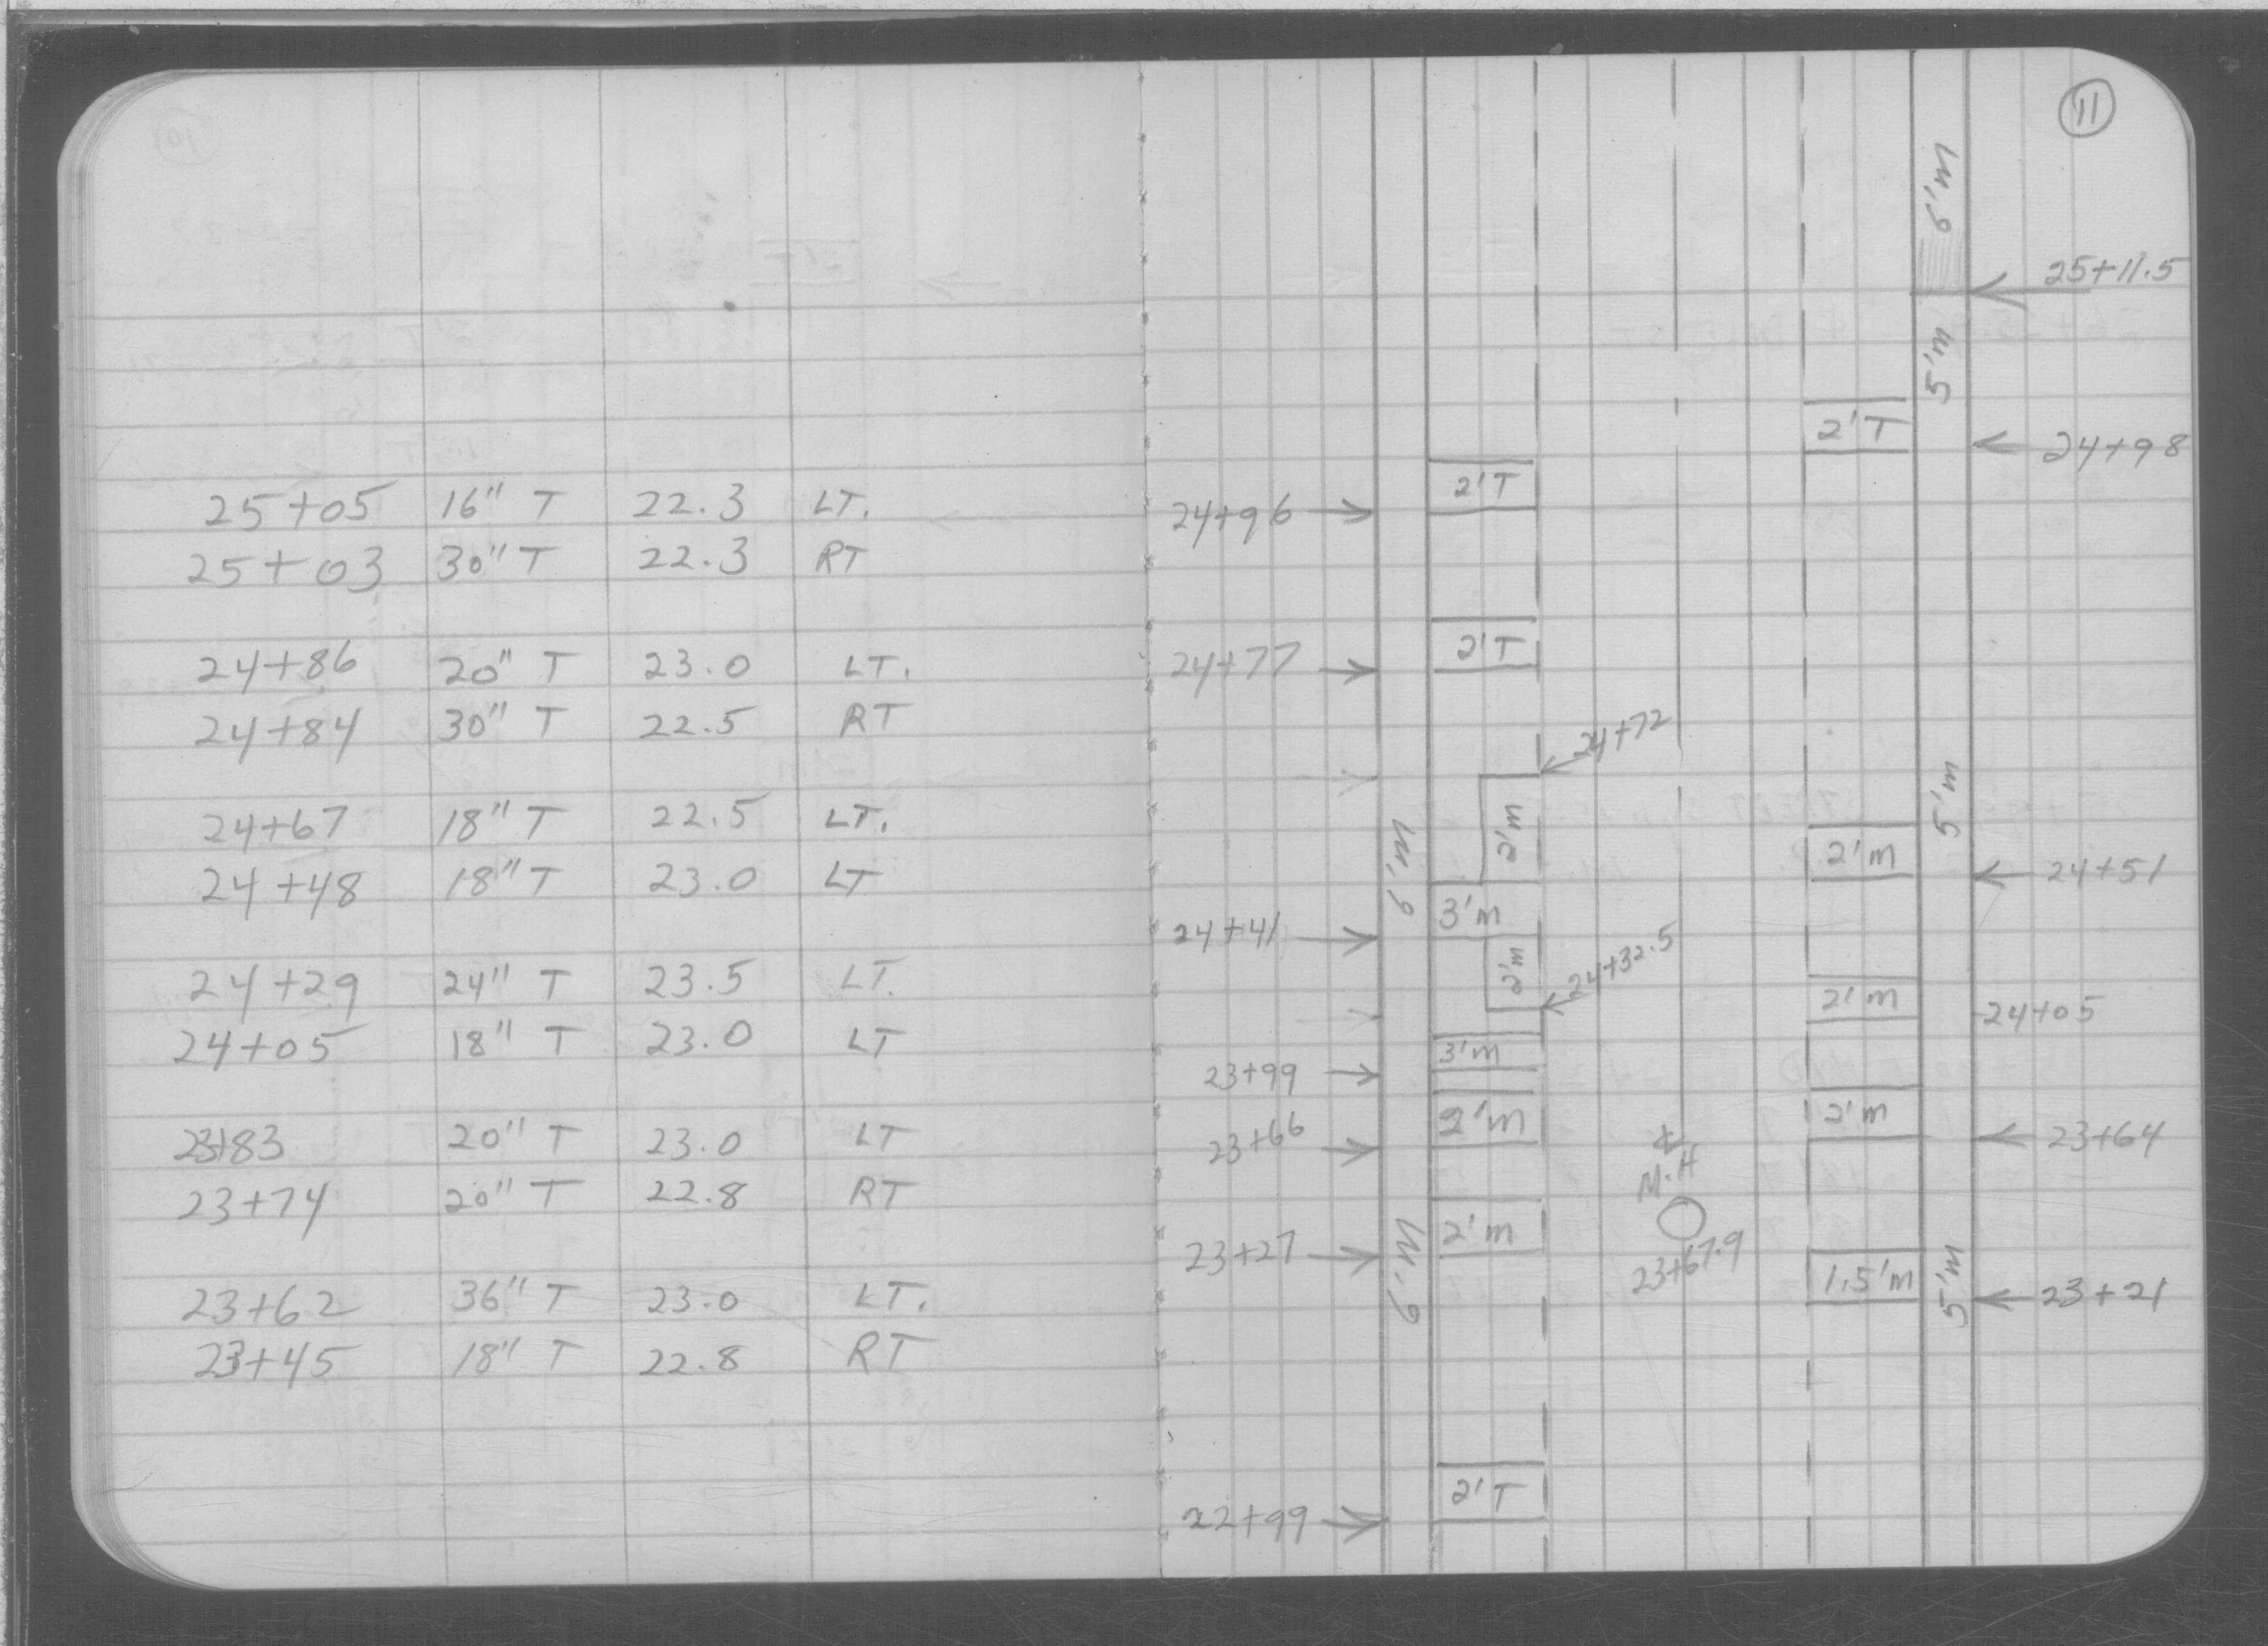 11
25+05 16" T 22.3 LT.
25+03 30" T 22.3 RT
24+86 20" T 23.0 LT.
24+84 30" T 22.5 RT
24+67 18" T 22.5 LT.
24+48 18" T 23.0 LT
24+29 24" T 23.5 LT.
24+05 18" T 23.0 LT
23+83 20" T 23.0 LT
23+74 20" T 22.8 RT
23+62 36" T 23.0 LT.
23+45 18" T 22.8 RT
6'm
25+11.5
5'm
2'T 24+98
24+96 2'T
24+77 2'T
24+72
2'm
5'm
6'm
2'm 24+51
24+41 3'm
2'm 24+32.5
2'm 24+05
23+99 3'm
23+66 2'm
2'm 23+64
M.H
23+67.9
23+27 2'm
6'm
1.5'm 5'm 23+21
22+99 2'T